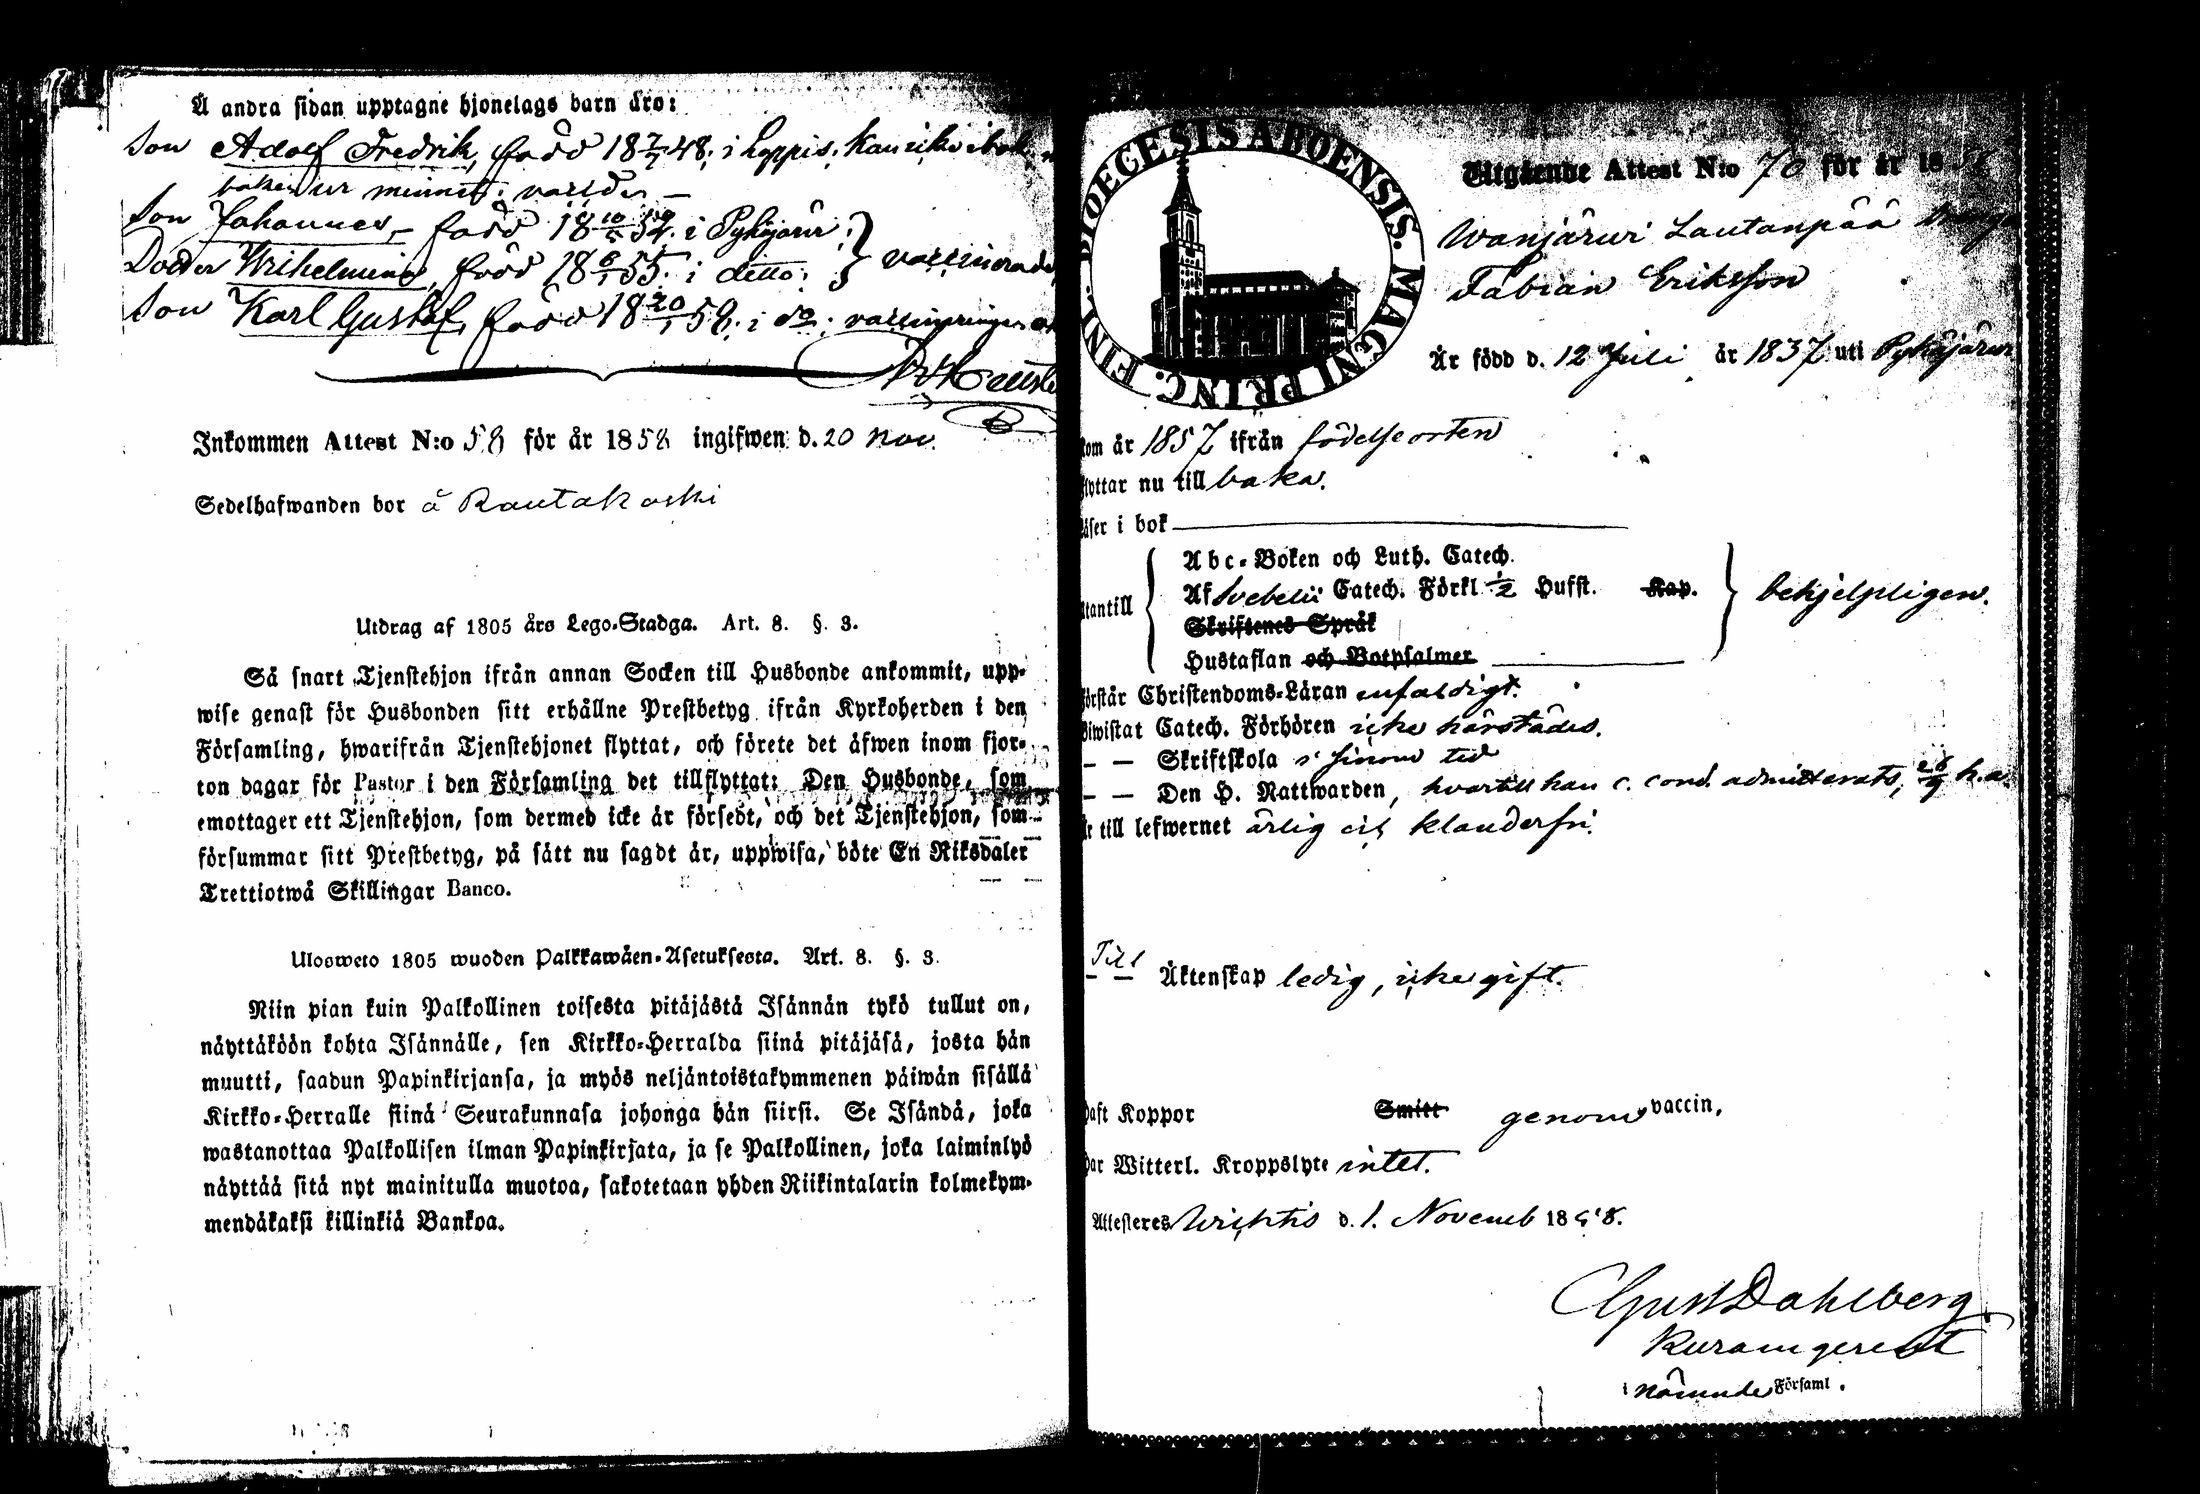 Å andra sidan upptagne hjonelags barn äro:
Son Adolf Fredrik, född 18 7/7 48. i Loppis; kan icke i bok,
baken ur minnet; vaccin. —
Son Johannes, — född 18 10/5 52. i Pyhäjärvi;
Dotter Wilhelmina, född 18 6/1 55. i ditto; } vaccinerade,
Son Karl Gustaf, född 18 20/1 58. i do;
Inkommen Attest N:o 58 för år 1858 ingifwen d. 20 Nov.
Sedelhafwanden bor å Rautakoski
Utdrag af 1805 års Lego-Stadga. Art. 8. §. 3.
Så snart Tjenstehjon ifrån annan Socken till Husbonde ankommit, upp-
wise genast för Husbonden sitt erhållne Prestbetyg ifrån Kyrkoherden i den
Församling, hwarifrån Tjenstehjonet flyttat, och förete det äfwen inom fjor-
ton dagar för Pastor i den Församling det tillflyttat: Den Husbonde, som
emottager ett Tjenstehjon, som dermed icke är försedt, och det Tjenstehjon, som
försummar sitt Prestbetyg, på sätt nu sagdt är, uppwisa, böte En Riksdaler
Trettiotwå Skillingar Banco.
Ulosweto 1805 wuoden Palkkawäen-Asetuksesta. Art. 8. §. 3.
Niin pian kuin Palkollinen toisesta pitäjästä Isännän tykö tullut on,
näyttäköön kohta Isännälle, sen Kirkko-Herralda siinä pitäjäsä, josta hän
muutti, saadun Papinkirjansa, ja myös neljäntoistakymmenen päiwän sisällä
Kirkko-Herralle siinä Seurakunnasa johonga hän siirsi. Se Isändä, joka
wastanottaa Palkollisen ilman Papinkirjata, ja se Palkollinen, joka laiminlyö
näyttää sitä nyt mainitulla muotoa, sakotetaan yhden Riikintalarin kolmekym-
mendäkaksi killinkiä Bankoa.
DIOECESIS ABOENSIS. MAGNI PRINC. FINL.
Utgående Attest N:o 70 för år 1858
Wanjärwi Lautanpää
Fabian Eriksson
Är född d. 12 Juli år 1837 uti Pyhäjärvi
kom år 1857 ifrån födelseorten
flyttar nu till baka.
läser i bok
utantill { Abc-Boken och Luth. Catech.
Af Svebelii Catech. Förkl 1/2 Husst. Kap. } behjelpligen.
Skriftenes Språk
Hustaflan och Botpsalmer
förstår Christendoms-Läran enfaldigt.
Biwistat Catech. Förhören icke härstädes.
— — Skriftskola i sinom tid
— — Den H. Nattwarden, hvartill han c. cond. admitterats, 26/9 h. a.
är till lefwernet ärlig och klanderfri.
Till
— — Äktenskap ledig, icke gift.
haft Koppor Smitt genom vaccin,
har Witterl. Kroppslyte intet.
Attesteres Wichtis d. 1. Novemb 1858.
Gust Dahlberg
Kuram gerent
i nämnde Församl.